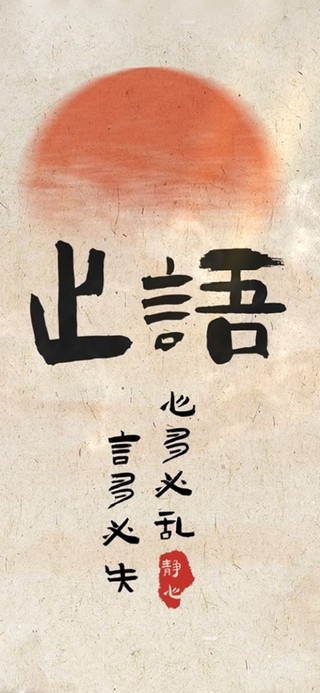 止語
心多必乱
言多必失
静心